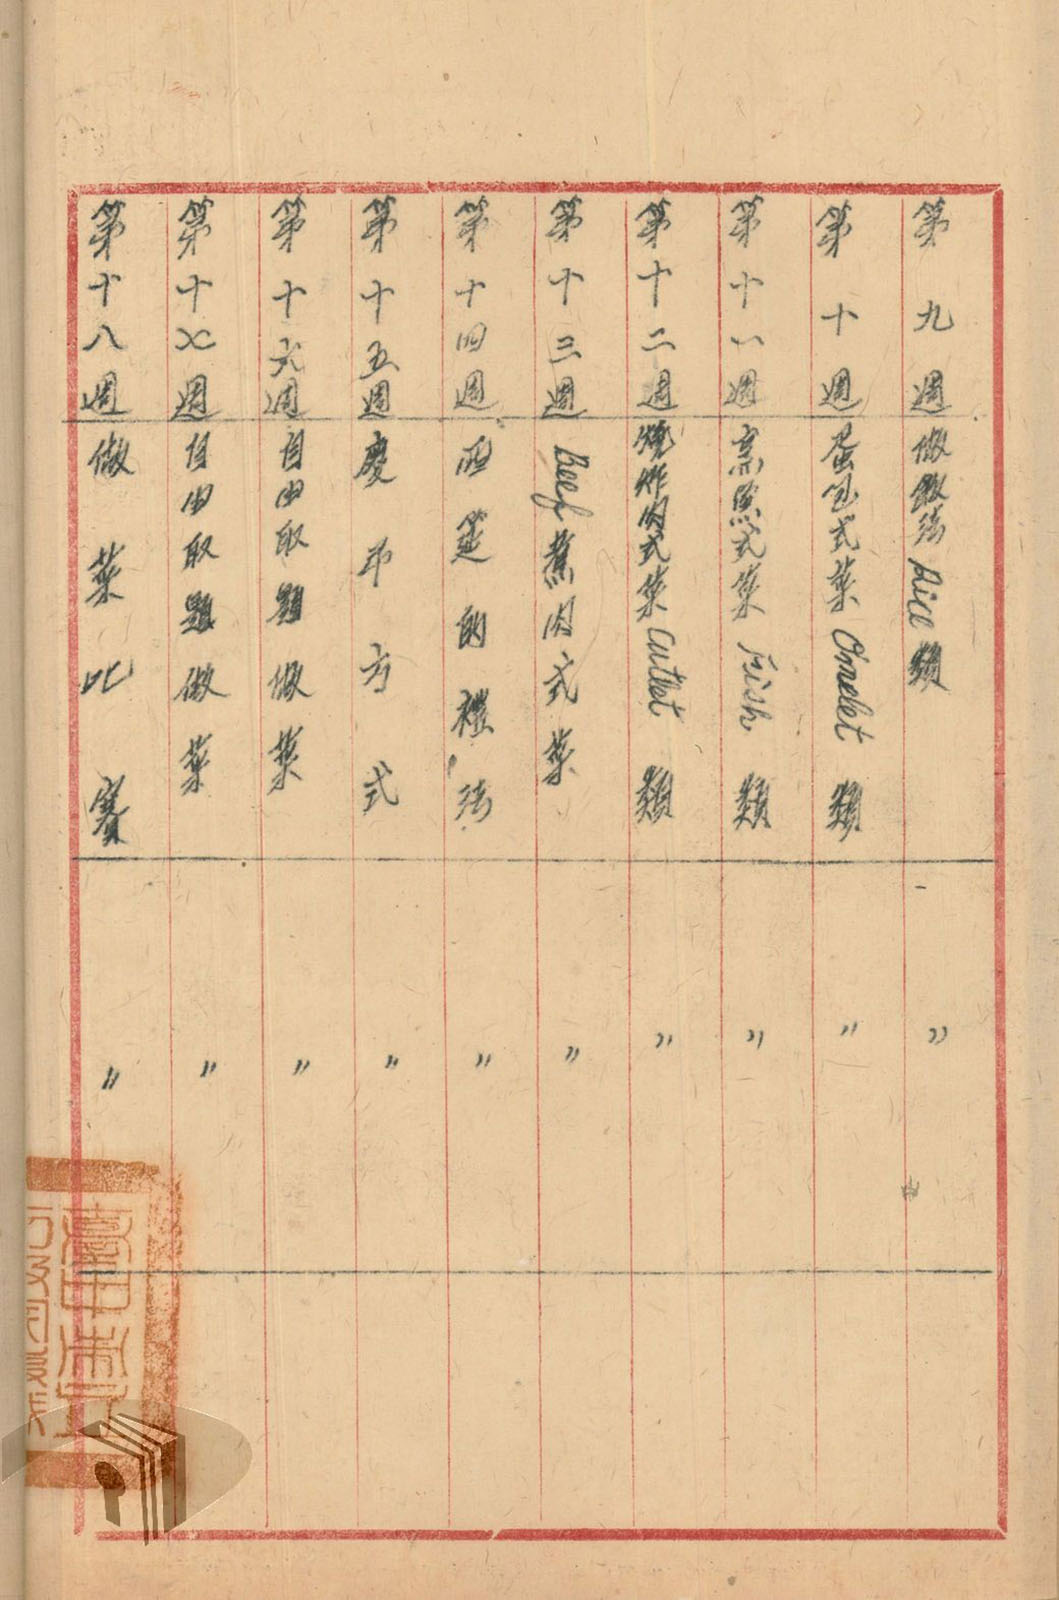 第九週 做飯法 Rice 類 〃
第十週 蛋包式菜 Omelet 類 〃
第十一週 烹魚式菜 Fish 類 〃
第十二週 燒炸肉式菜 Cutlet 類 〃
第十三週 Beef 蕉肉式菜 〃
第十四週 西筵的禮法 〃
第十五週 慶弔方式 〃
第十六週 自由取題做菜 〃
第十七週 自由取題做菜 〃
第十八週 做菜比賽 〃
臺中市